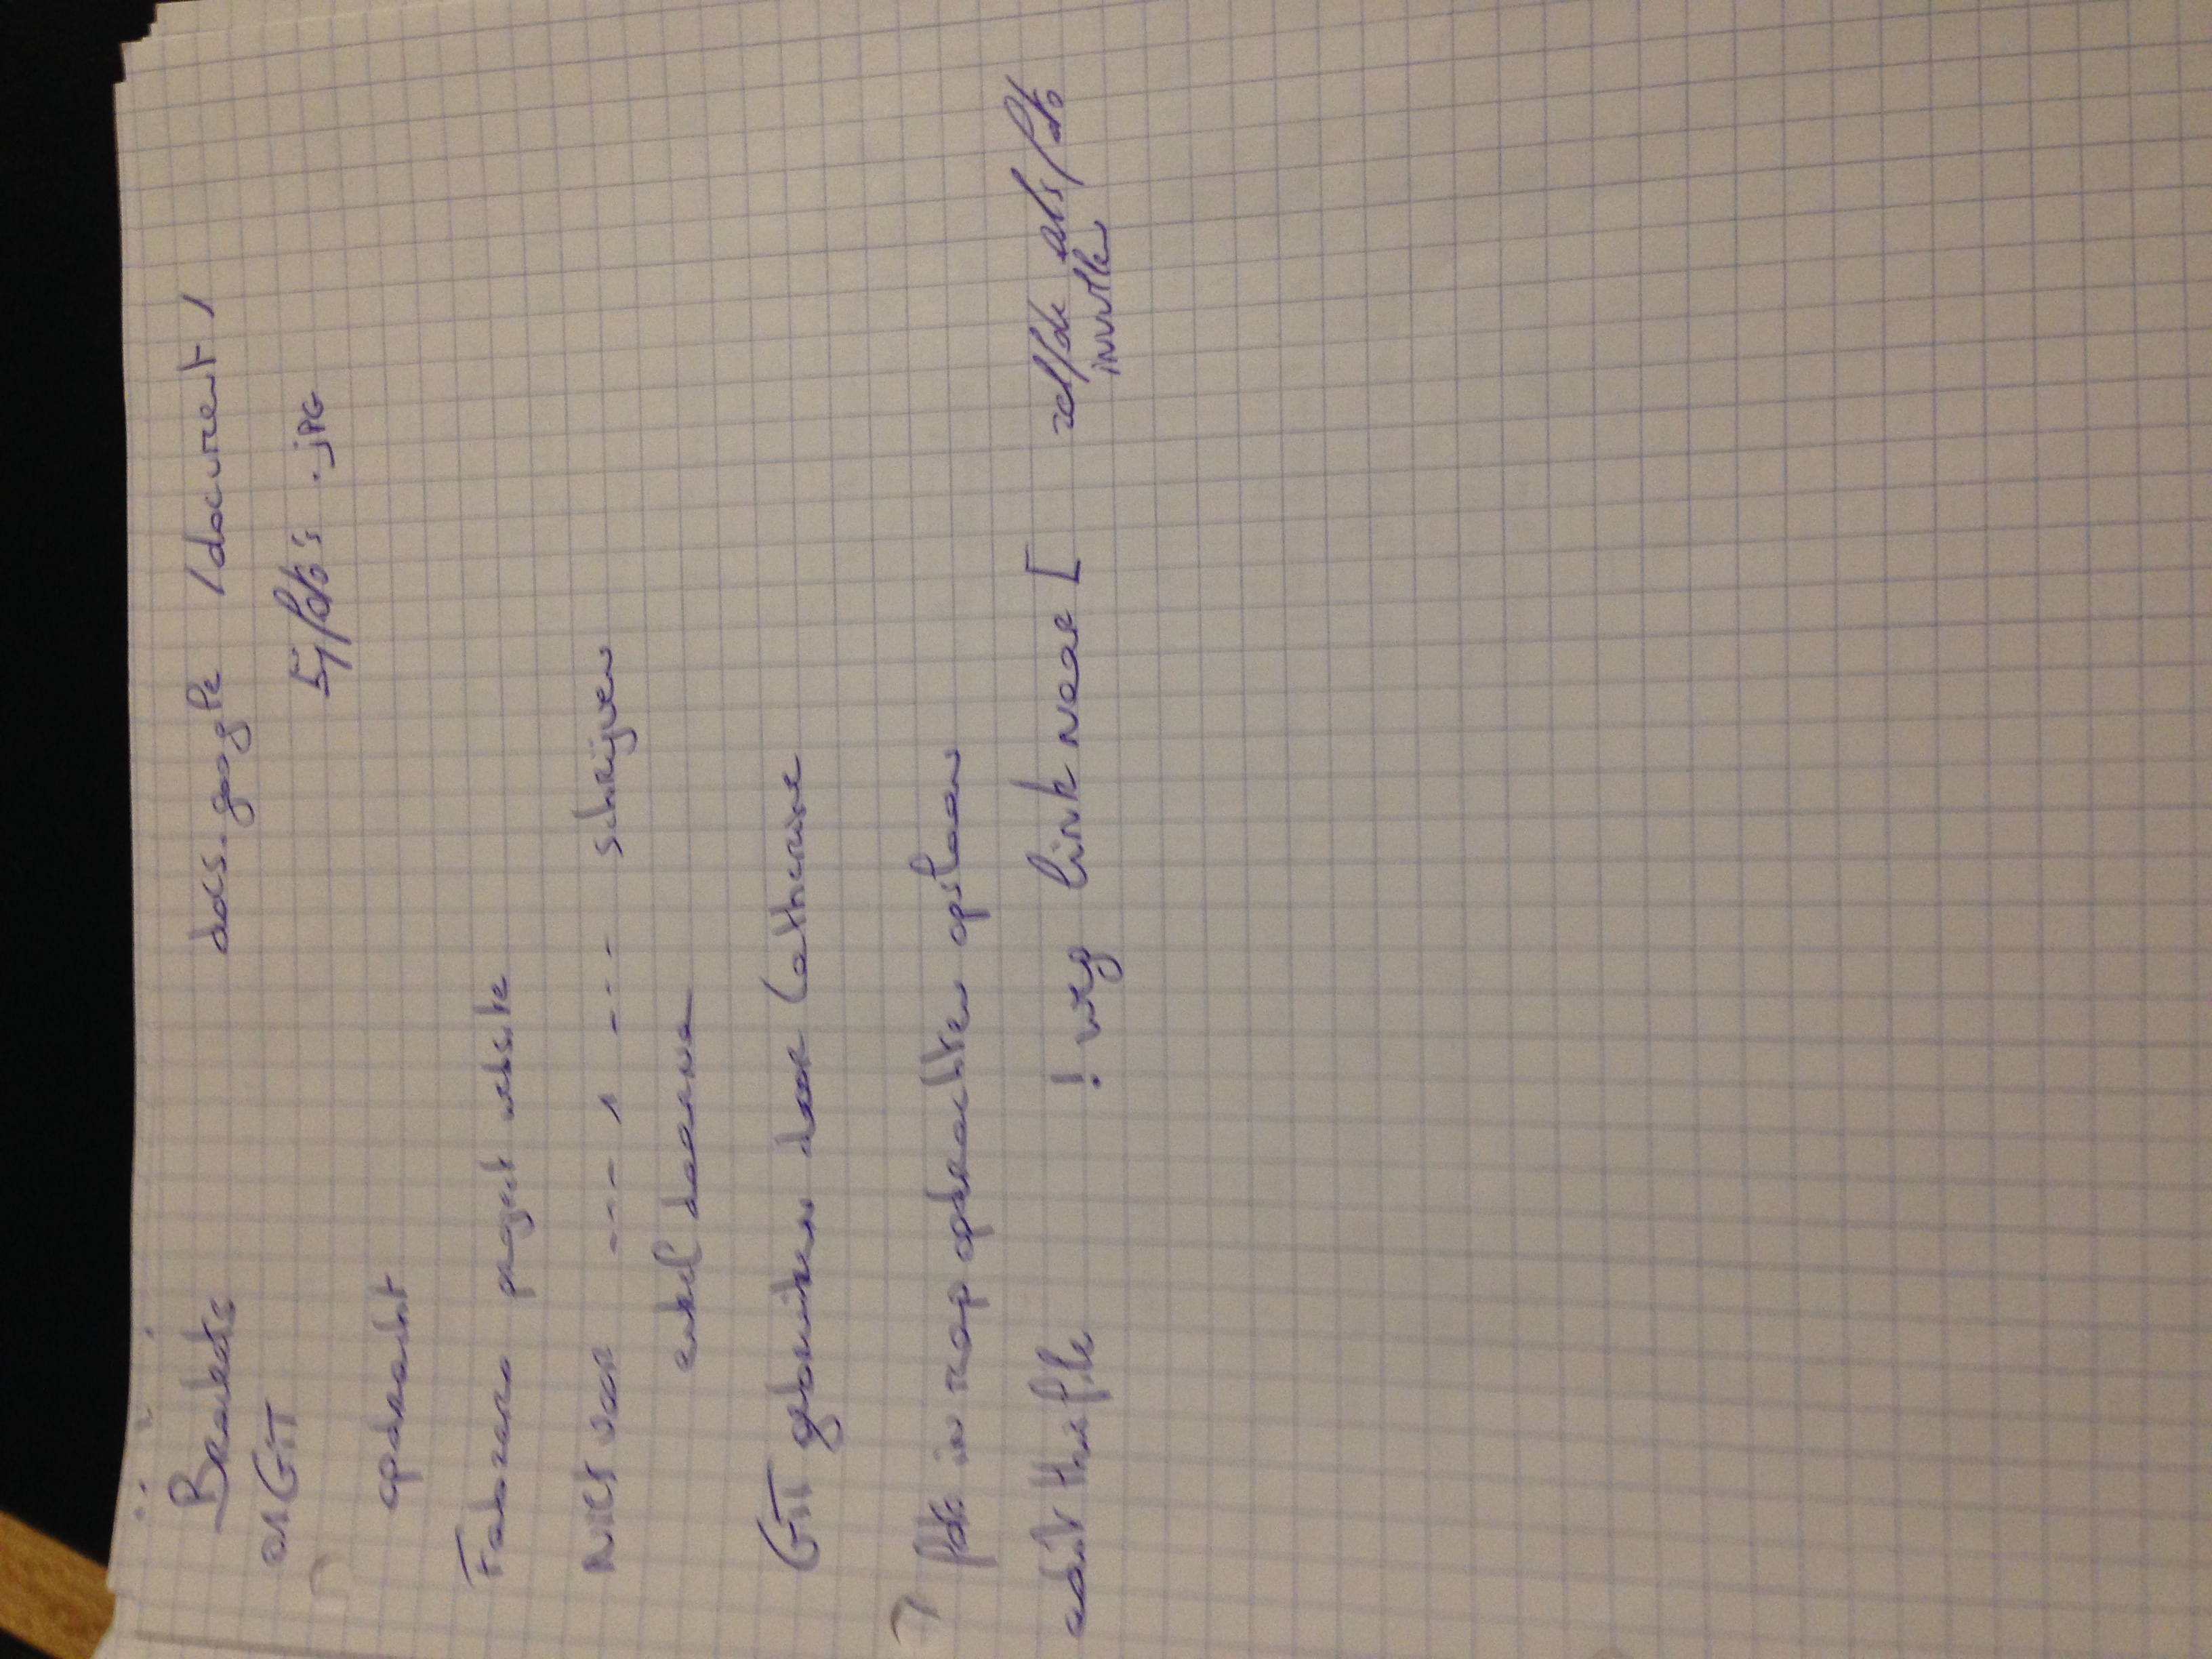 Brackets docs.google /document/
on GIT
5 foto's .jPG
opdracht
Fabzero project website
Niet voor --- , --- schrijven
enkel daarna
GIT gebruiken door Catherine
foto in map opdrachten opslaan
edit the file ! weg link naar [ zelfde als foto
invullen